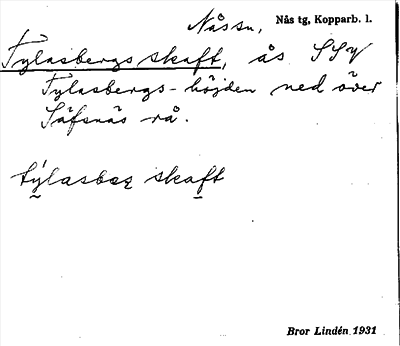 Nåssn, Nås tg, Kopparb. l.
Tylasbergs skaft, ås SSV
Tylasbergs-höjden ned över
Säfsnäs rå.
týlasbæ̨ skaft
Bror Lindén 1931